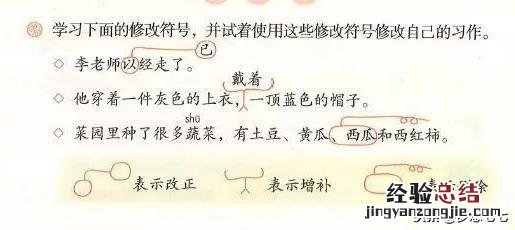 学习下面的修改符号，并试着使用这些修改符号修改自己的习作。
已
◇ 李老师以经走了。
戴着
◇ 他穿着一件灰色的上衣，一顶蓝色的帽子。
shū
◇ 菜园里种了很多蔬菜，有土豆、黄瓜、西瓜和西红柿。
表示改正 表示增补 表示
经验总结
jingyanzongjie.com